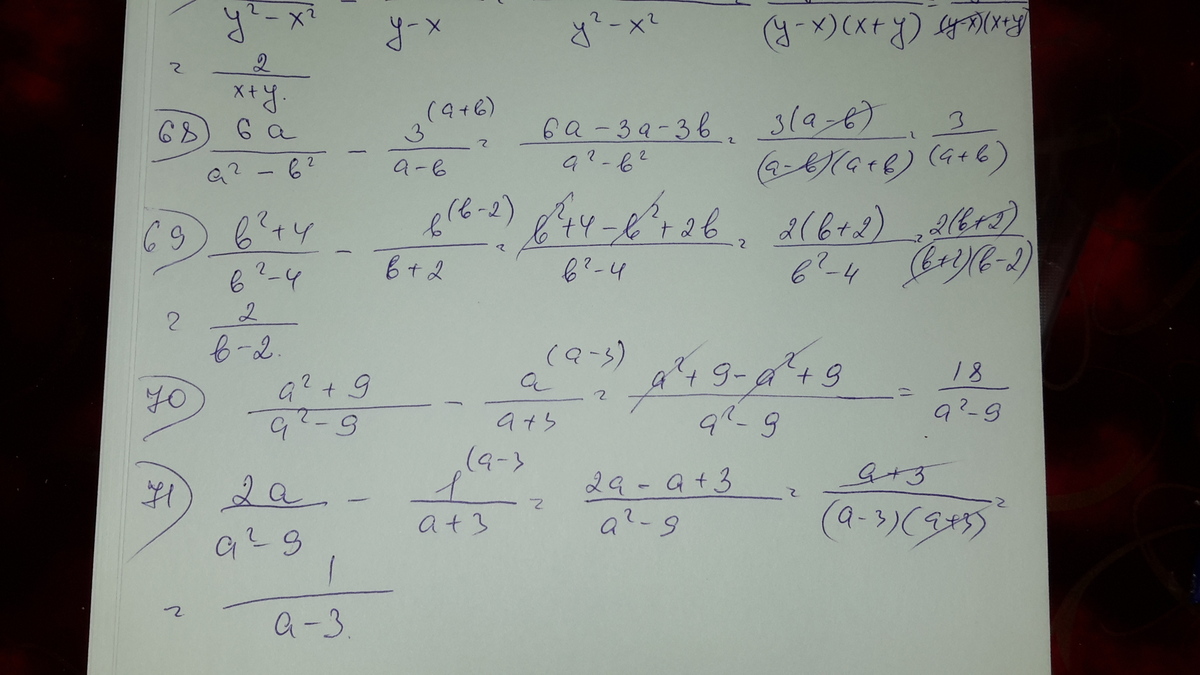 y² - x² y - x y² - x² (y - x)(x + y) (y - x)(x + y)
= 2/(x + y).
68) 6a/(a² - b²) - 3^(a + b)/(a - b) = (6a - 3a - 3b)/(a² - b²) = 3(a - b)/((a - b)(a + b)) = 3/(a + b)
69) (b² + 4)/(b² - 4) - b^(b - 2)/(b + 2) = (b² + 4 - b² + 2b)/(b² - 4) = 2(b + 2)/(b² - 4) = 2(b + 2)/((b + 2)(b - 2))
= 2/(b - 2).
70) (a² + 9)/(a² - 9) - a^(a - 3)/(a + 3) = (a² + 9 - a² + 9)/(a² - 9) = 18/(a² - 9)
71) 2a/(a² - 9) - 1^(a - 3/(a + 3) = (2a - a + 3)/(a² - 9) = (a + 3)/((a - 3)(a + 3)) =
= 1/(a - 3).